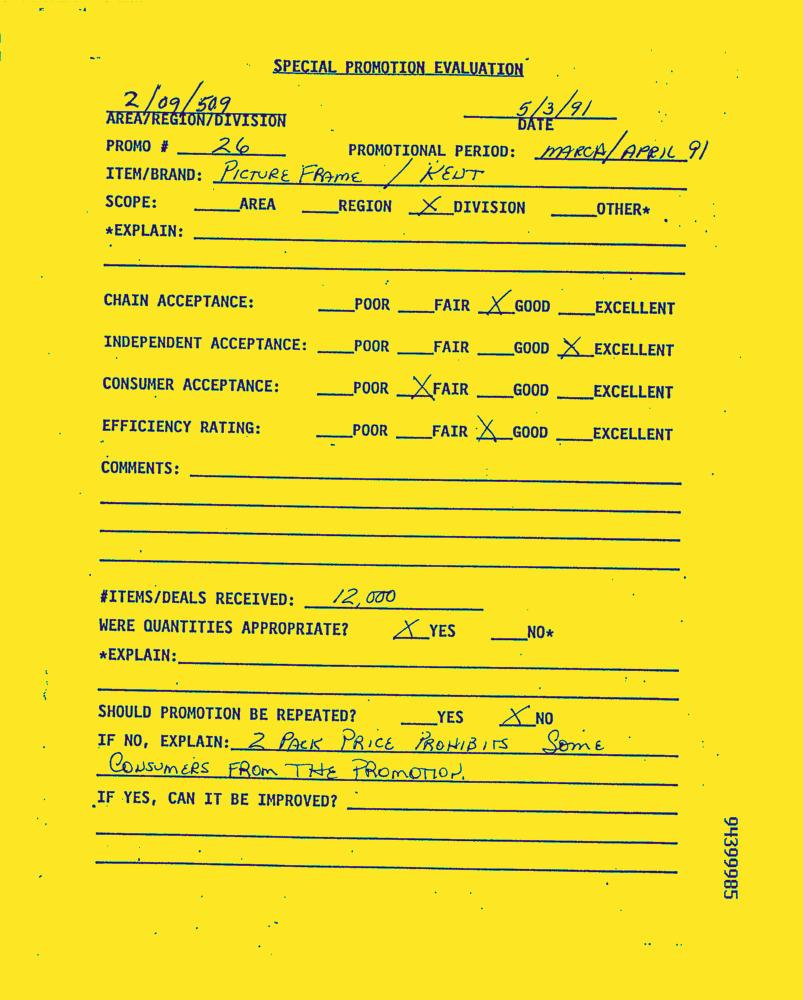 SPECIAL PROMOTION EVALUATION
2/09/509 5/3/91
AREA/REGION/DIVISION DATE
PROMO # 26 PROMOTIONAL PERIOD: MARCH/APRIL 91
ITEM/BRAND: PICTURE FRAME / KENT
SCOPE: ____AREA ____REGION X DIVISION ____OTHER*
*EXPLAIN:
CHAIN ACCEPTANCE: ____POOR ____FAIR X GOOD ____EXCELLENT
INDEPENDENT ACCEPTANCE: ____POOR ____FAIR ____GOOD X EXCELLENT
CONSUMER ACCEPTANCE: ____POOR X FAIR ____GOOD ____EXCELLENT
EFFICIENCY RATING: ____POOR ____FAIR X GOOD ____EXCELLENT
COMMENTS:
#ITEMS/DEALS RECEIVED: 12,000
WERE QUANTITIES APPROPRIATE? X YES ____NO*
*EXPLAIN:
SHOULD PROMOTION BE REPEATED? ____YES X NO
IF NO, EXPLAIN: 2 PACK PRICE PROHIBITS SOME
CONSUMERS FROM THE PROMOTION.
IF YES, CAN IT BE IMPROVED?
94399985